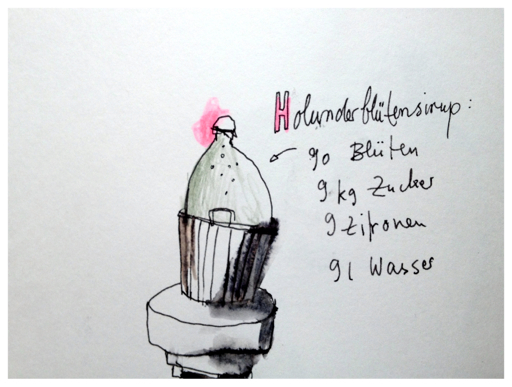 Holunderblütensirup:
90 Blüten
9 kg Zucker
9 Zitronen
9 l Wasser